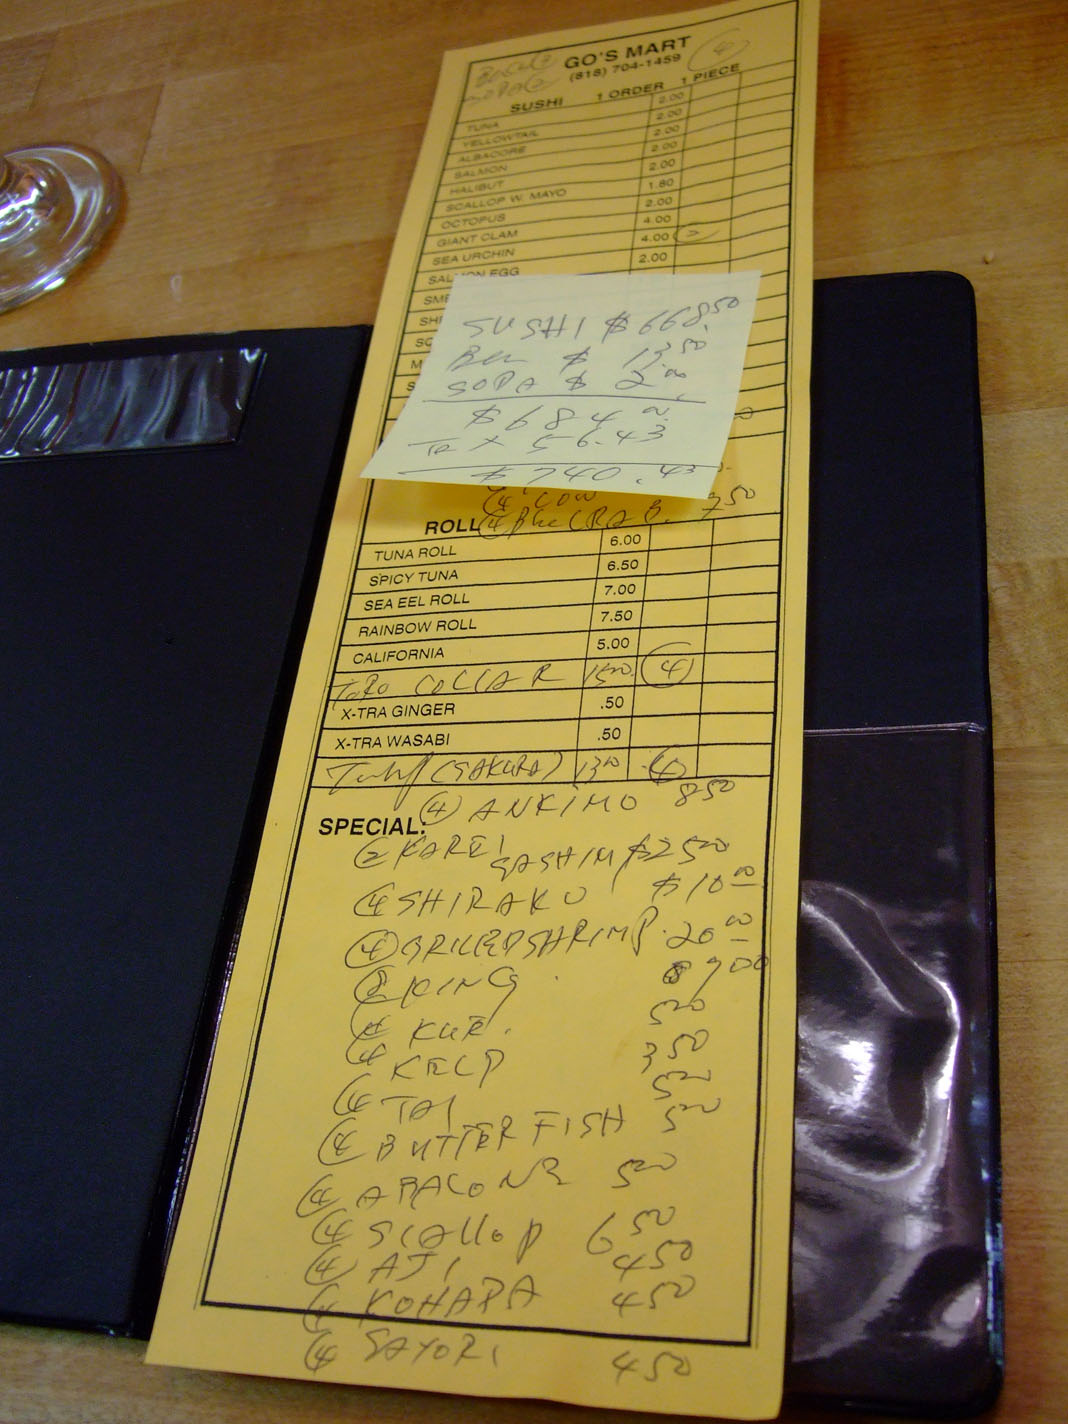 GO'S MART
(818) 704-1459
SUSHI 1 ORDER 1 PIECE
TUNA 2.00
YELLOWTAIL 2.00
ALBACORE 2.00
SALMON 2.00
HALIBUT 2.00
SCALLOP W. MAYO 1.80
OCTOPUS 2.00
GIANT CLAM 4.00
SEA URCHIN 4.00 2
SALMON EGG 2.00
SUSHI $668.50
$ 13.50
SODA $ 2.00
$684.00
Tax 56.43
$740.43
④ Blue CRAB. 7 50
ROLL
TUNA ROLL 6.00
SPICY TUNA 6.50
SEA EEL ROLL 7.00
RAINBOW ROLL 7.50
CALIFORNIA 5.00
TORO COLLAR 15 00 ④
X-TRA GINGER .50
X-TRA WASABI .50
(SAKURA) 13 00 ④
④ ANKIMO 8 50
SPECIAL:
② KAREI SASHIMI $25 00
④ SHIRAKO $10 00
④ GRILLED SHRIMP. 20 00
KING. 9 00
④ KUE. 5 00
④ KELP 3 50
④ TAI 5 00
④ BUTTER FISH 5 00
④ ABALONE 5 00
④ SCALLOP 6 50
④ AJI 4 50
④ KOHADA 4 50
④ SAYORI 4 50